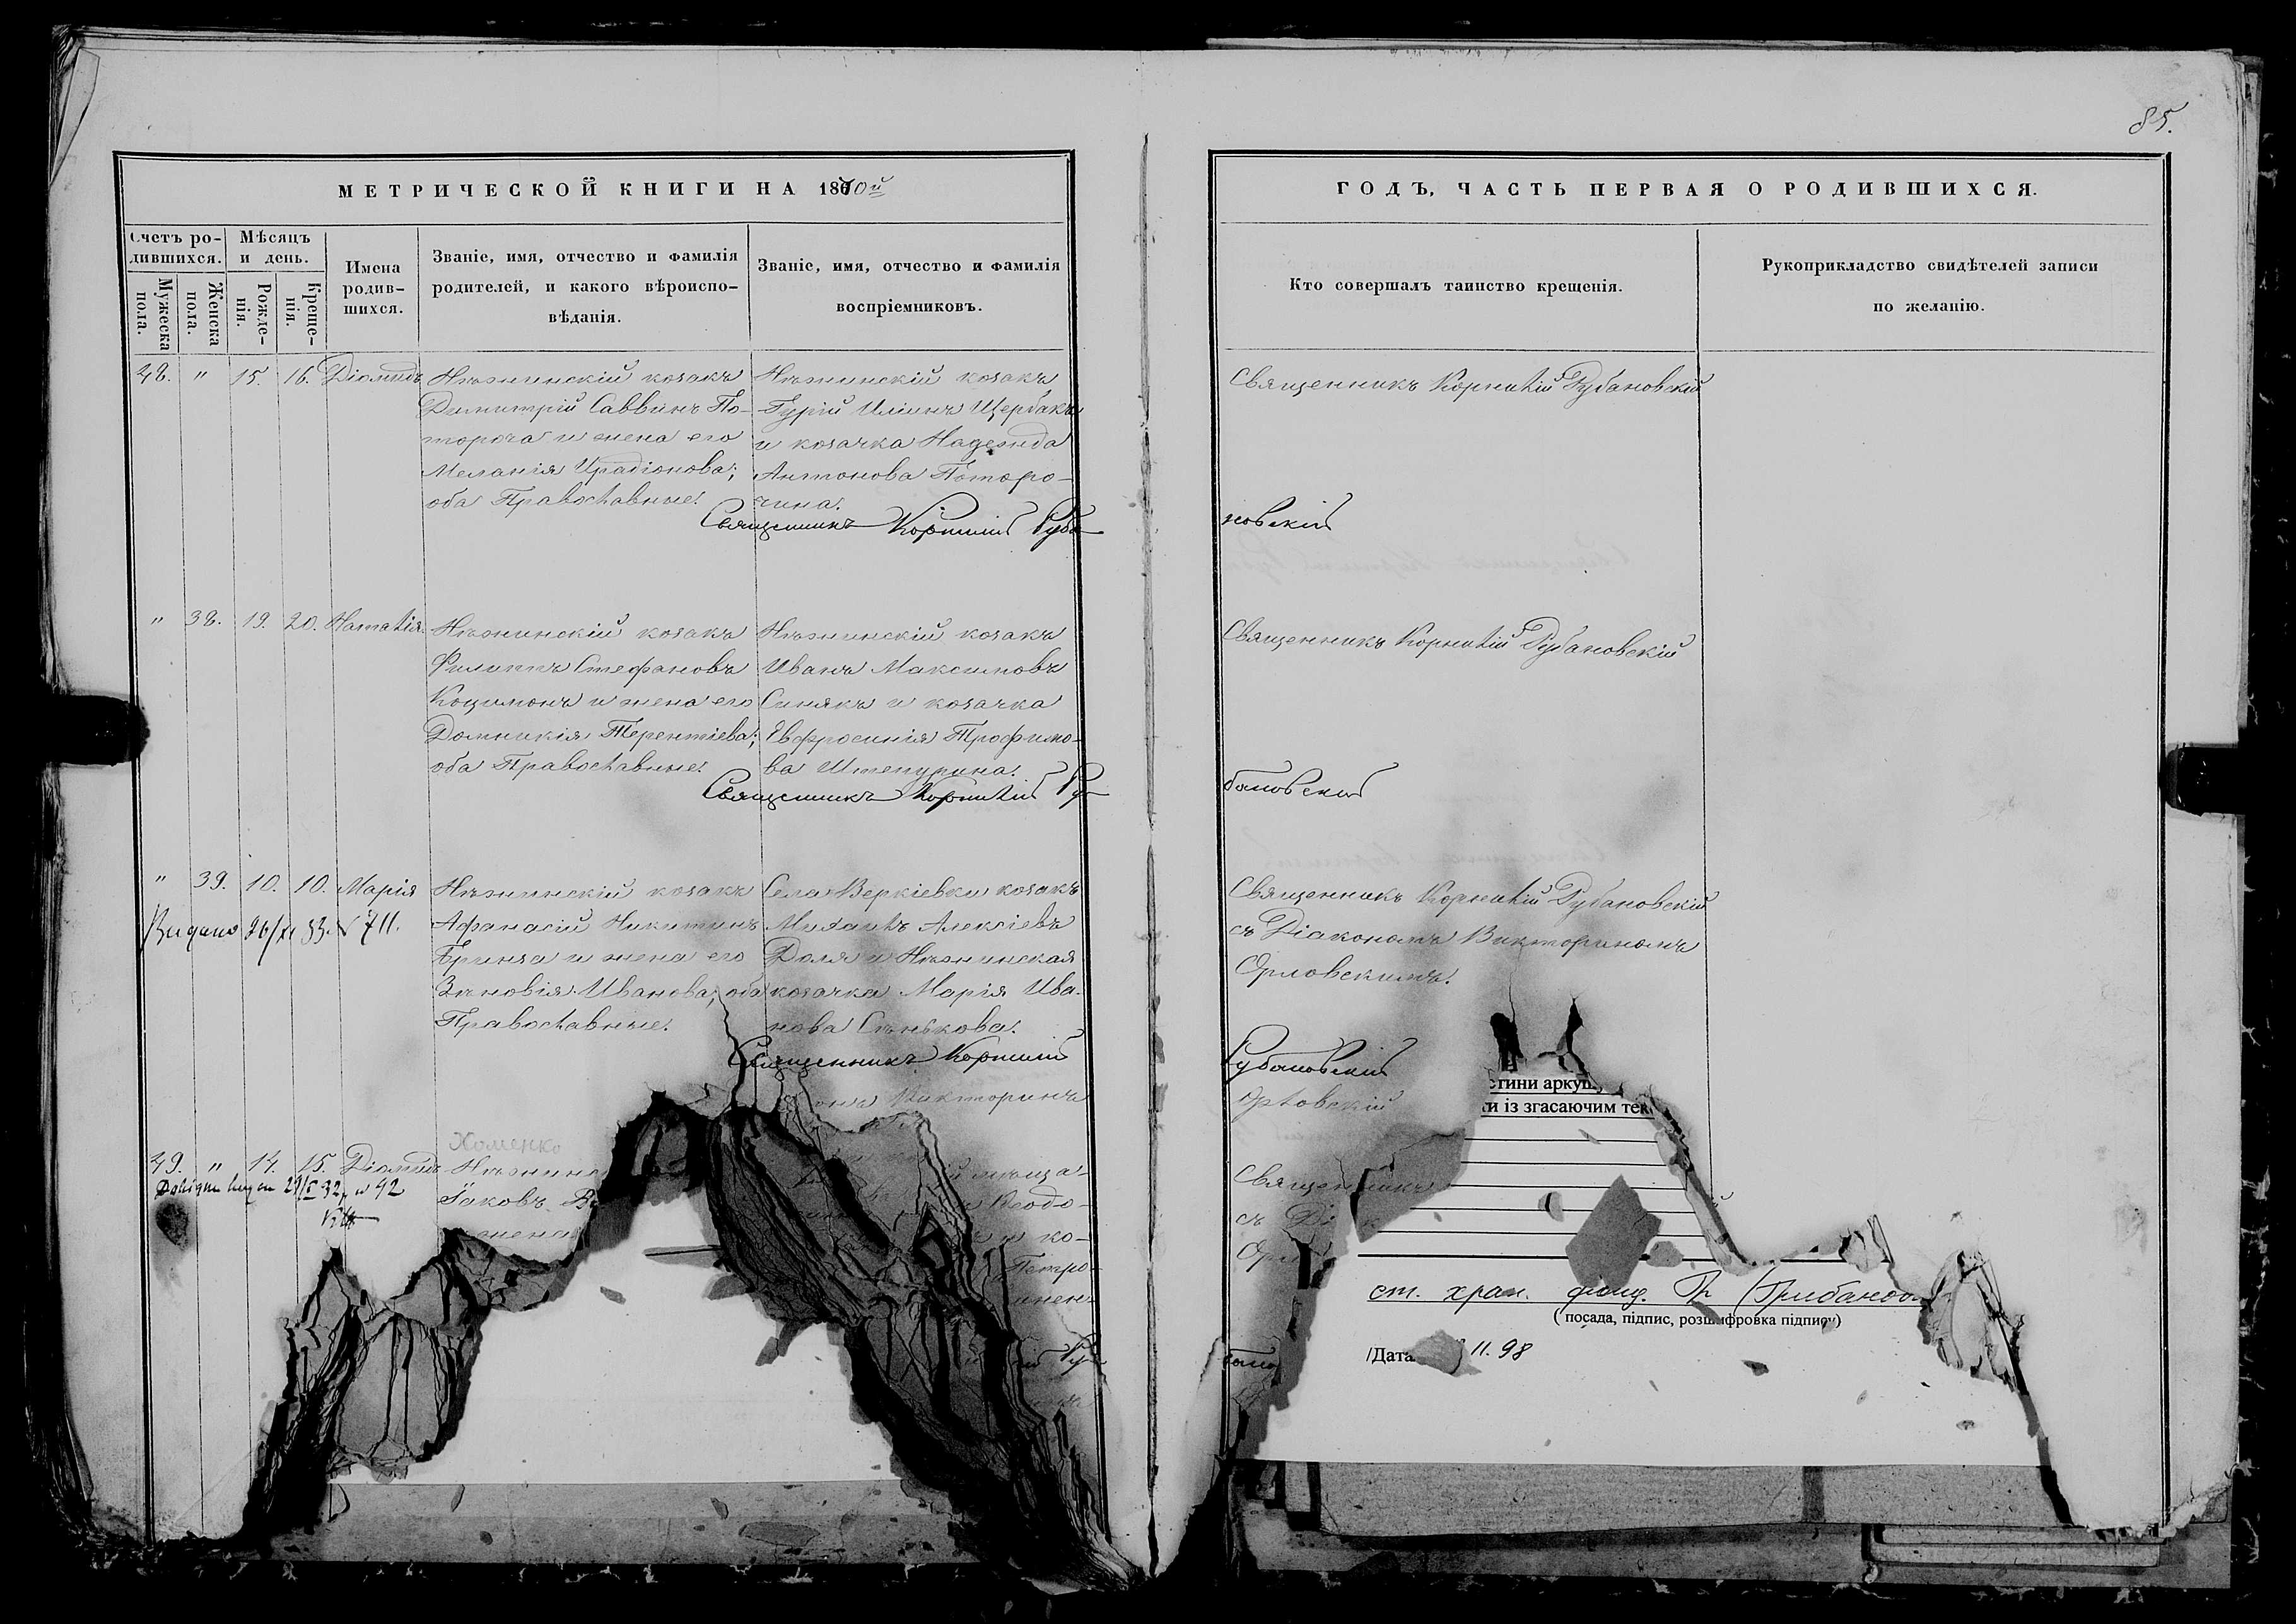 85.
МЕТРИЧЕСКОЙ КНИГИ НА 1870й
ГОДЪ, ЧАСТЬ ПЕРВАЯ О РОДИВШИХСЯ.
Счетъ ро-
дившихся.
Мужеска
пола.
Женска
пола.
Мѣсяцъ
и день.
Рожде-
нія.
Креще-
нія.
Имена
родив-
шихся.
Званіе, имя, отчество и фамилія
родителей, и какого вѣроиспо-
вѣданія.
Званіе, имя, отчество и фамилія
воспріемниковъ.
Кто совершалъ таинство крещенія.
Рукоприкладство свидѣтелей записи
по желанію.
48. " 15. 16. Діомидъ
Нѣжинскій козакъ
Димитрій Саввинъ По-
тороча и жена его
Меланія Ирадіонова;
оба Православные.
Нѣжинскій козакъ
Гурій Иліинъ Щербакъ
и козачка Надежда
Антонова Поторо-
чина.
Священникъ Корнилій Рубановскій
Священникъ Корнилій Руба
новскій
" 38. 19. 20. Наталія
Нѣжинскій козакъ
Филиппъ Стефановъ
Коцимонъ и жена его
Домникія Терентіева;
оба Православные.
Нѣжинскій козакъ
Иванъ Максимовъ
Синякъ и козачка
Евфросинія Трофимо-
ва Штепурина.
Священникъ Корнилій Рубановскій
Священникъ Корнилій Ру
бановскій
" 39. 10. 10. Марія
Видано 26/XI 33. N 711.
Нѣжинскій козакъ
Афанасій Никитинъ
Бринза и жена его
Зѣновія Иванова; оба
Православные.
Села Веркіевки козакъ
Михаилъ Алексіевъ
Доля и Нѣжинская
козачка Марія Ива-
нова Сенькова.
Священникъ Корнилій Рубановскій
съ Діакономъ Викториномъ
Орловскимъ.
Священникъ Корнилій
Рубановскій
онъ Викторинъ
Орловскій
Хоменко
49. " 14. 15. Діомидъ
32 N 42
Нѣжинс
Яковъ
жена
й мѣща-
Ѳеодо-
и ко-
Петро-
Священникъ
съ Ді к
Орл
Ру
бано
стини аркуш
и із згасаючим тек
ст. хран. фонд. Гр (Грибанов
( посада, підпис, розшифровка підпису)
/Дата 11. 98